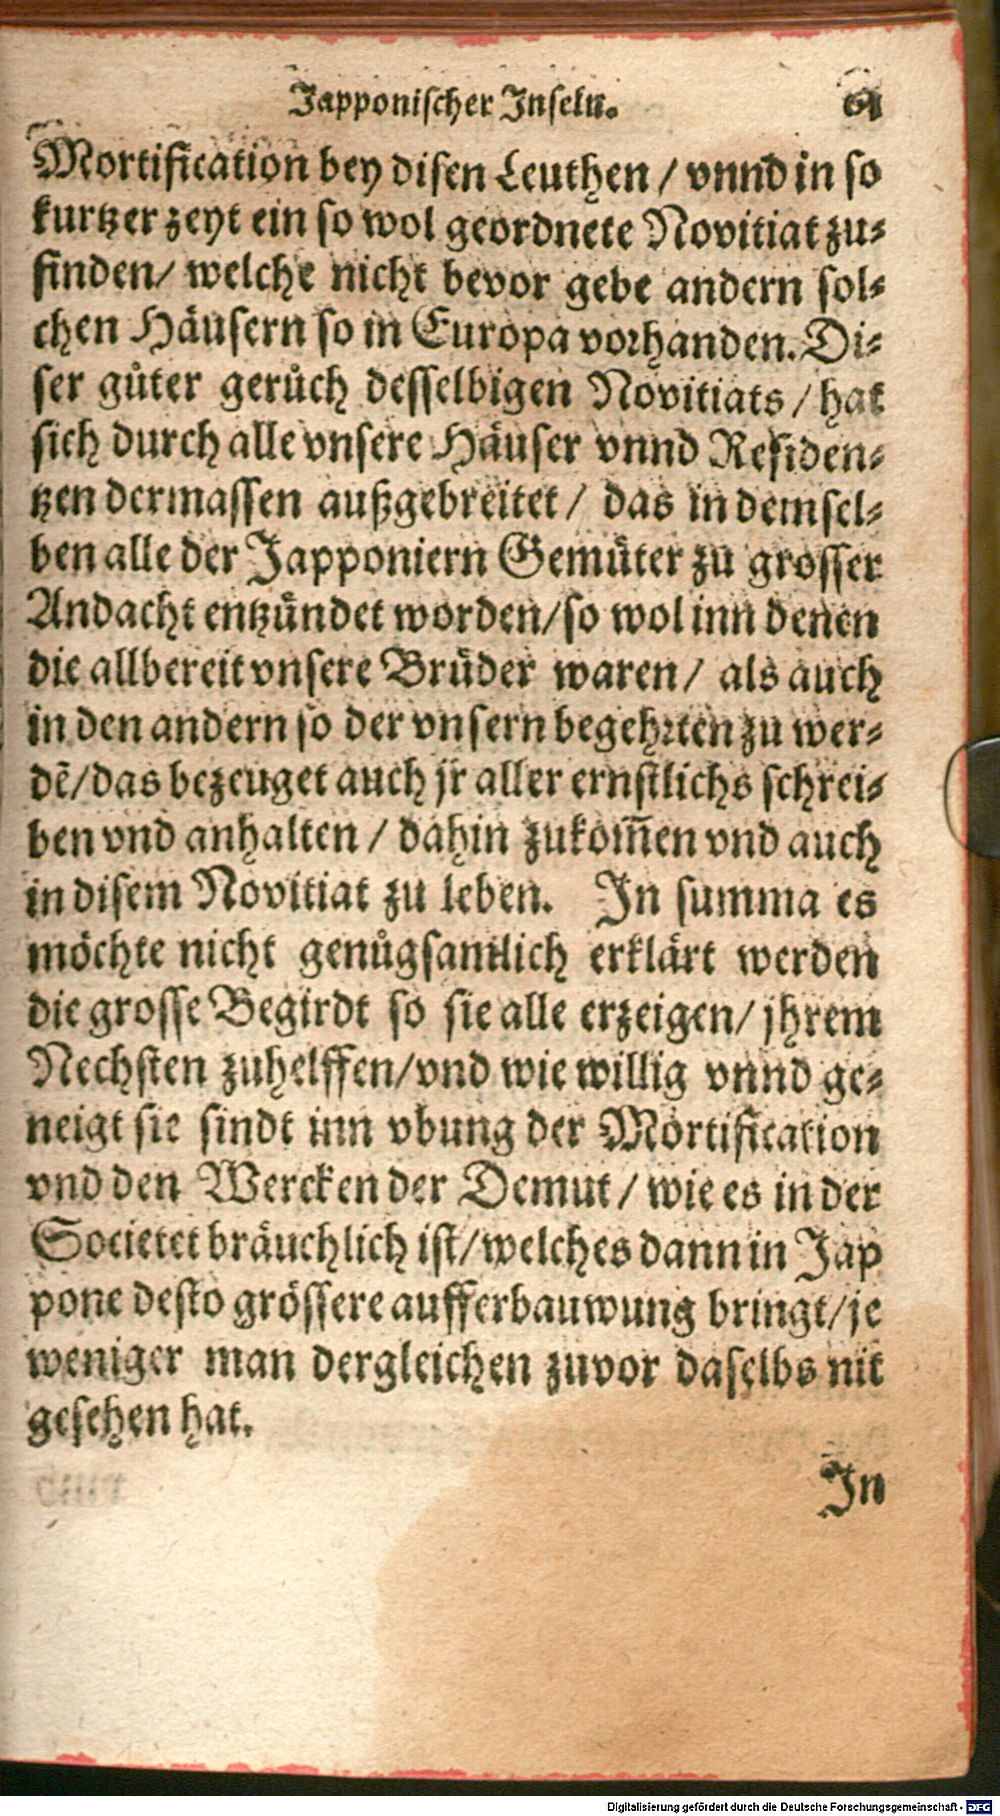 Japponischer Inseln. 61
Mortification bey disen Leuthen / vnnd in so
kurtzer zeyt ein so wol geordnete Novitiat zu-
finden/ welche nicht bevor gebe andern sol-
chen Häusern so in Europa vorhanden. Di-
ser gůter gerůch desselbigen Novitiats / hat
sich durch alle vnsere Häuser vnnd Residen-
tzen dermassen außgebreitet / das in demsel-
ben alle der Japponiern Gemüter zu grosser
Andacht entzündet worden/so wol inn denen
die allbereit vnsere Brüder waren/ als auch
in den andern so der vnsern begehrten zu wer-
dē/das bezeuget auch jr aller ernstlichs schrei-
ben vnd anhalten / dahin zukom̄en vnd auch
in disem Novitiat zu leben. In summa es
möchte nicht genůgsamlich erklärt werden
die grosse Begirdt so sie alle erzeigen/ jhrem
Nechsten zuhelffen/vnd wie willig vnnd ge-
neigt sie sindt inn vbung der Mortification
vnd den Wercken der Demut / wie es in der
Societet bräuchlich ist/welches dann in Jap
pone desto grössere aufferbauwung bringt/je
weniger man dergleichen zuvor daselbs nit
gesehen hat.
In
Digitalisierung gefördert durch die Deutsche Forschungsgemeinschaft - DFG